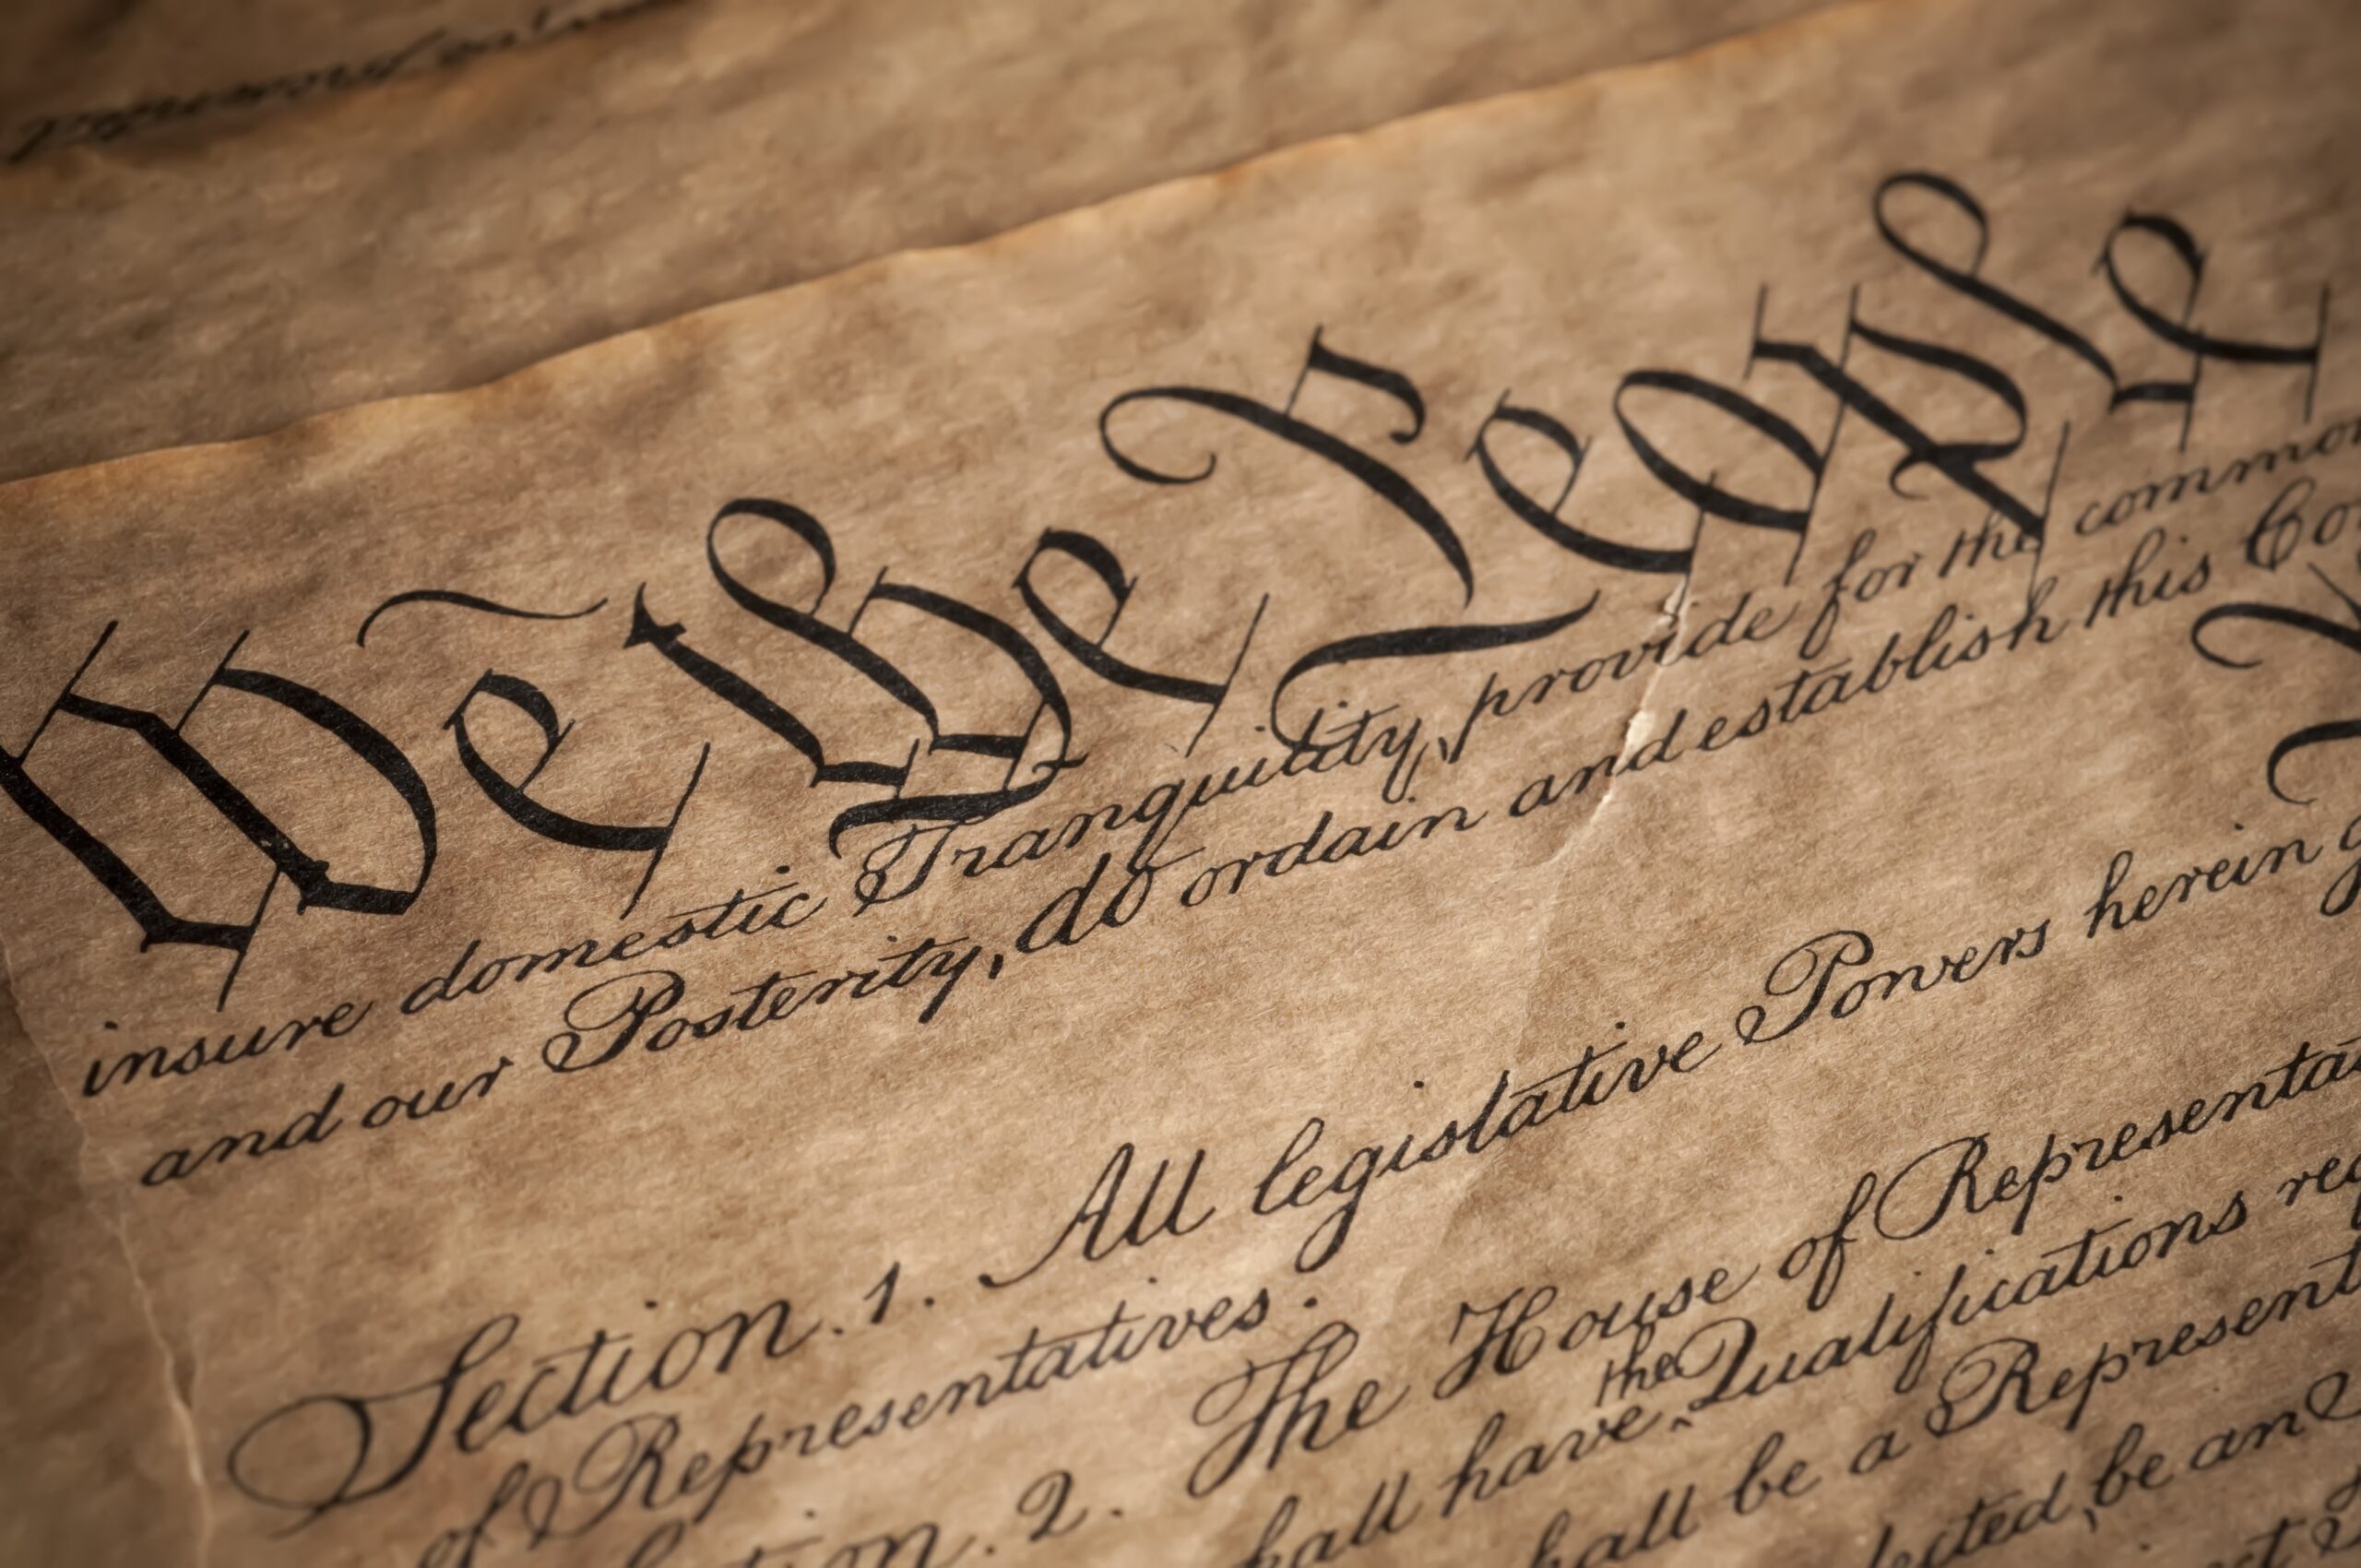 We the People
insure domestic Tranquility, provide for the common
and our Posterity, do ordain and establish this Co
Section. 1. All legislative Powers herein g
of Representatives.
ction. 2. The House of Representat
the
hall have Qualifications req
hall be a Represent
lected, be an